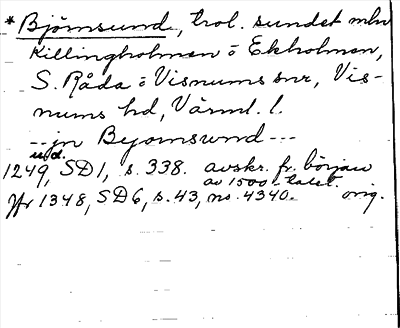 * Björnsund, trol. sundet mln
Killingholmen o Ekholmen,
S. Råda o Visnums snr, Vis-
nums hd, Värml. l.
-- jn Byornsund ---
u.d.
1249, SD1, s. 338. avskr. fr. början
av 1500-talet.
Jfr 1348, SD6, s. 43, no 4340. orig.